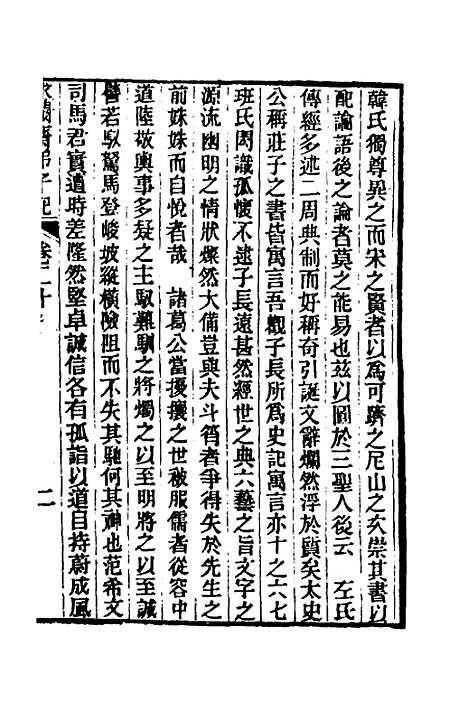 韓氏獨尊異之而宋之賢者以爲可躋之尼山之次崇其書以
配論語後之論者莫之能易也茲以圖於三聖人後云　左氏
傳經多述二周典制而好稱奇引誕文辭爛然浮於質矣太史
公稱莊子之書皆寓言吾觀子長所爲史記寓言亦十之六七
班氏閎識孤懷不逮子長遠甚然經世之典六藝之旨文字之
源流幽明之情狀燦然大備豈與夫斗筲者爭得失於先生之
前姝姝而自悅者哉　諸葛公當擾攘之世被服儒者從容中
道陸敬輿事多疑之主馭難馴之將燭之以至明將之以至誠
譬若馭駑馬登峻坡縱橫險阻而不失其馳何其神也范希文
司馬君實遭時差隆然堅卓誠信各有孤詣以道自持蔚成風
求闕齋弟子記　卷二十
二